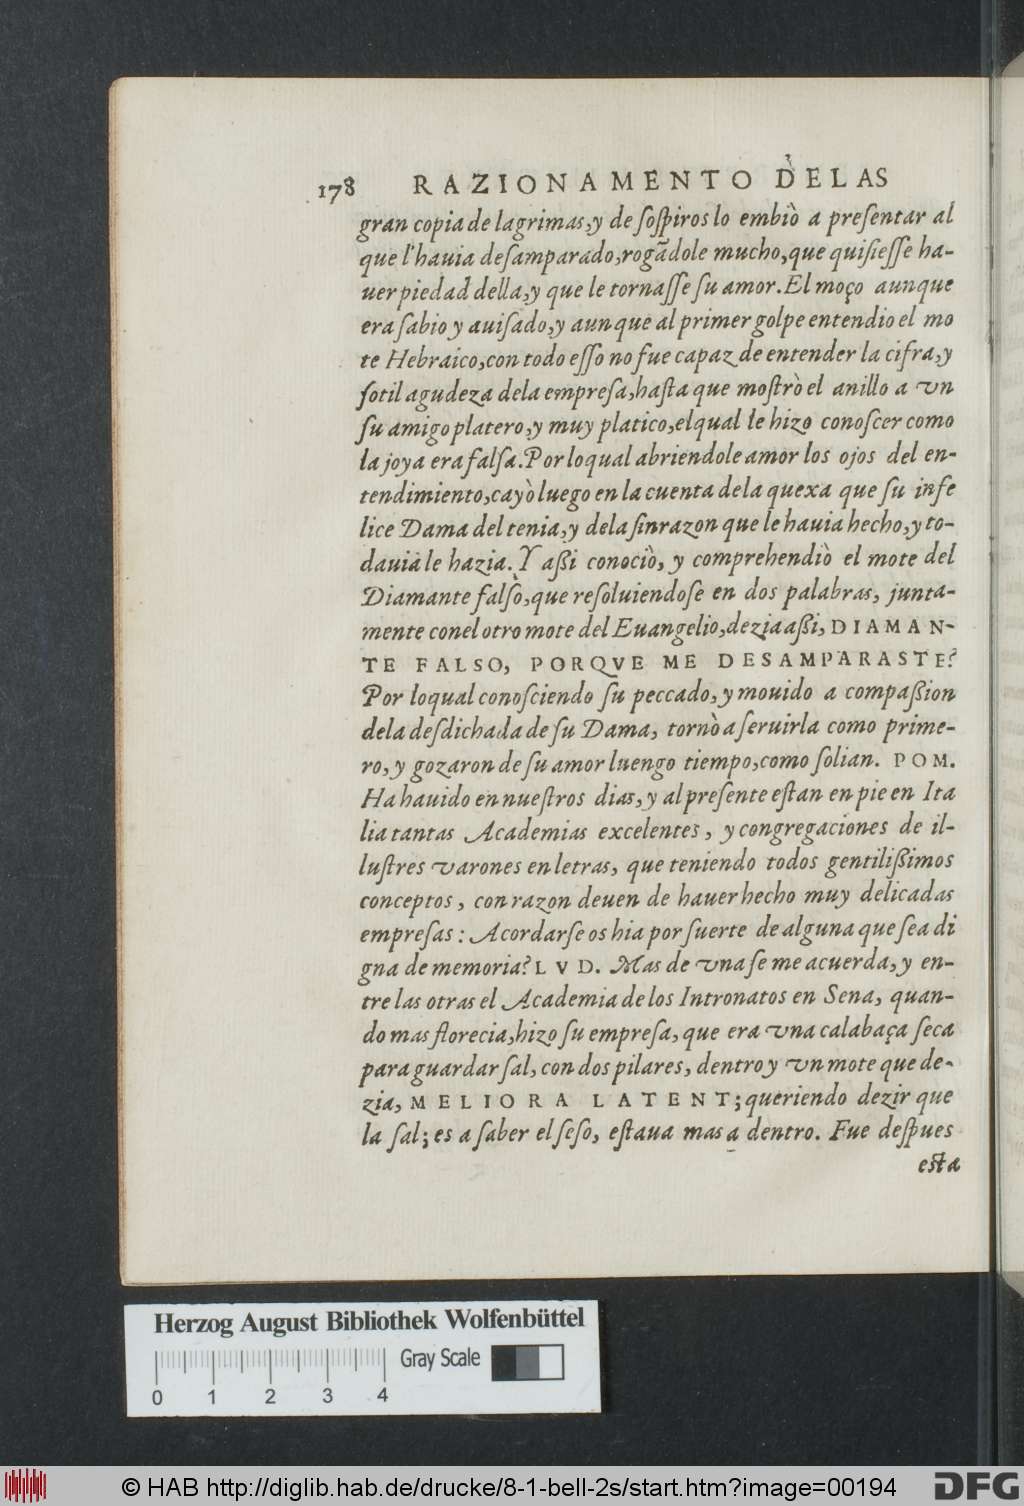 178 RAZIONAMENTO DELAS
gran copia de lagrimas, y de soſpiros lo embiò a preſentar al
que l'hauia deſamparado, rogãdole mucho, que quiſieſſe ha-
uer piedad della, y que le tornaſſe ſu amor. El moço aunque
era ſabio y auiſado, y aunque al primer golpe entendio el mo
te Hebraico, con todo eſſo no fue capaz de entender la cifra, y
ſotil agudeza dela empreſa, haſta que moſtrò el anillo a vn
ſu amigo platero, y muy platico, elqual le hizo conoſcer como
la joya era falſa. Por loqual abriendole amor los ojos del en-
tendimiento, cayò luego en la cuenta dela quexa que ſu infe
lice Dama del tenia, y dela ſinrazon que le hauia hecho, y to-
dauia le hazia. Y aßi conociò, y comprehendiò el mote del
Diamante falſo, que reſoluiendoſe en dos palabras, junta-
mente conel otro mote del Euangelio, dezia aßi, DIAMAN-
TE FALSO, PORQVE ME DESAMPARASTE?
Por loqual conoſciendo ſu peccado, y mouido a compaßion
dela deſdichada de ſu Dama, tornò a ſeruirla como prime-
ro, y gozaron de ſu amor luengo tiempo, como ſolian. POM.
Ha hauido en nueſtros dias, y al preſente eſtan en pie en Ita
lia tantas Academias excelentes, y congregaciones de il-
luſtres varones en letras, que teniendo todos gentilißimos
conceptos, con razon deuen de hauer hecho muy delicadas
empreſas: Acordarſe os hia por ſuerte de alguna que ſea di
gna de memoria? LVD. Mas de vna ſe me acuerda, y en-
tre las otras el Academia de los Intronatos en Sena, quan-
do mas florecia, hizo ſu empreſa, que era vna calabaça ſeca
para guardar ſal, con dos pilares, dentro y vn mote que de-
zia, MELIORA LATENT; queriendo dezir que
la ſal; es a ſaber el ſeſo, eſtaua mas a dentro. Fue deſpues
eſta
Herzog August Bibliothek Wolfenbüttel
Gray Scale
0 1 2 3 4
© HAB http://diglib.hab.de/drucke/8-1-bell-2s/start.htm?image=00194
DFG